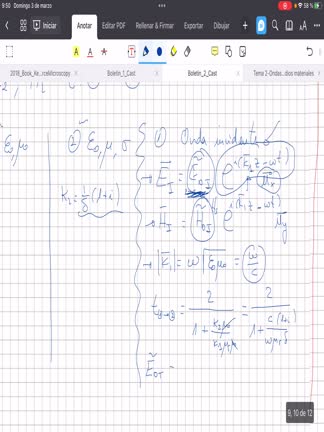 9:50 Domingo 3 de marzo
58 %
Iniciar Anotar Editar PDF Rellenar & Firmar Exportar Dibujar
2018_Book_Ke...rceMicroscopy Boletin_1_Cast Boletin_2_Cast Tema 2-Ondas...dios materiales
ε₀, μ₀
② ε₀, μ, σ
K₂ = 1/δ (1+i)
① Onda incidente
→ E⃗_I = Ẽ_0I e^{i(K₁z - ωt)} u⃗_x
→ H⃗_I = H̃_0I e^{i(K₁z - ωt)} u⃗_y
→ |K⃗₁| = ω√(ε₀μ₀) = ω/c
t_{①→②} = 2 / (1 + K₂μ₀/K₁μᵣμ₀) = 2 / (1 + c(1+i)/ωμᵣδ)
Ẽ_0T =
9, 10 de 12